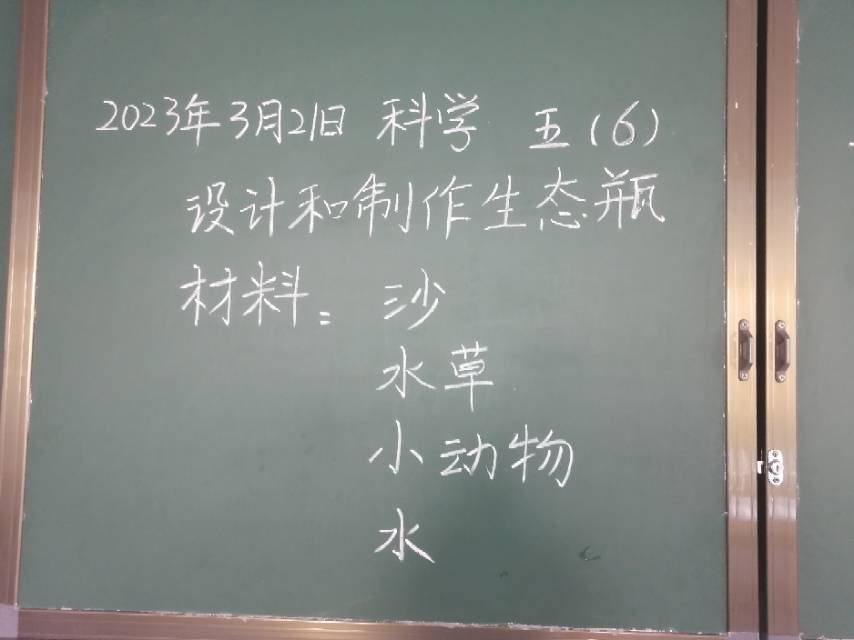 2023年3月21日 科学 五(6)
设计和制作生态瓶
材料：沙
水草
小动物
水